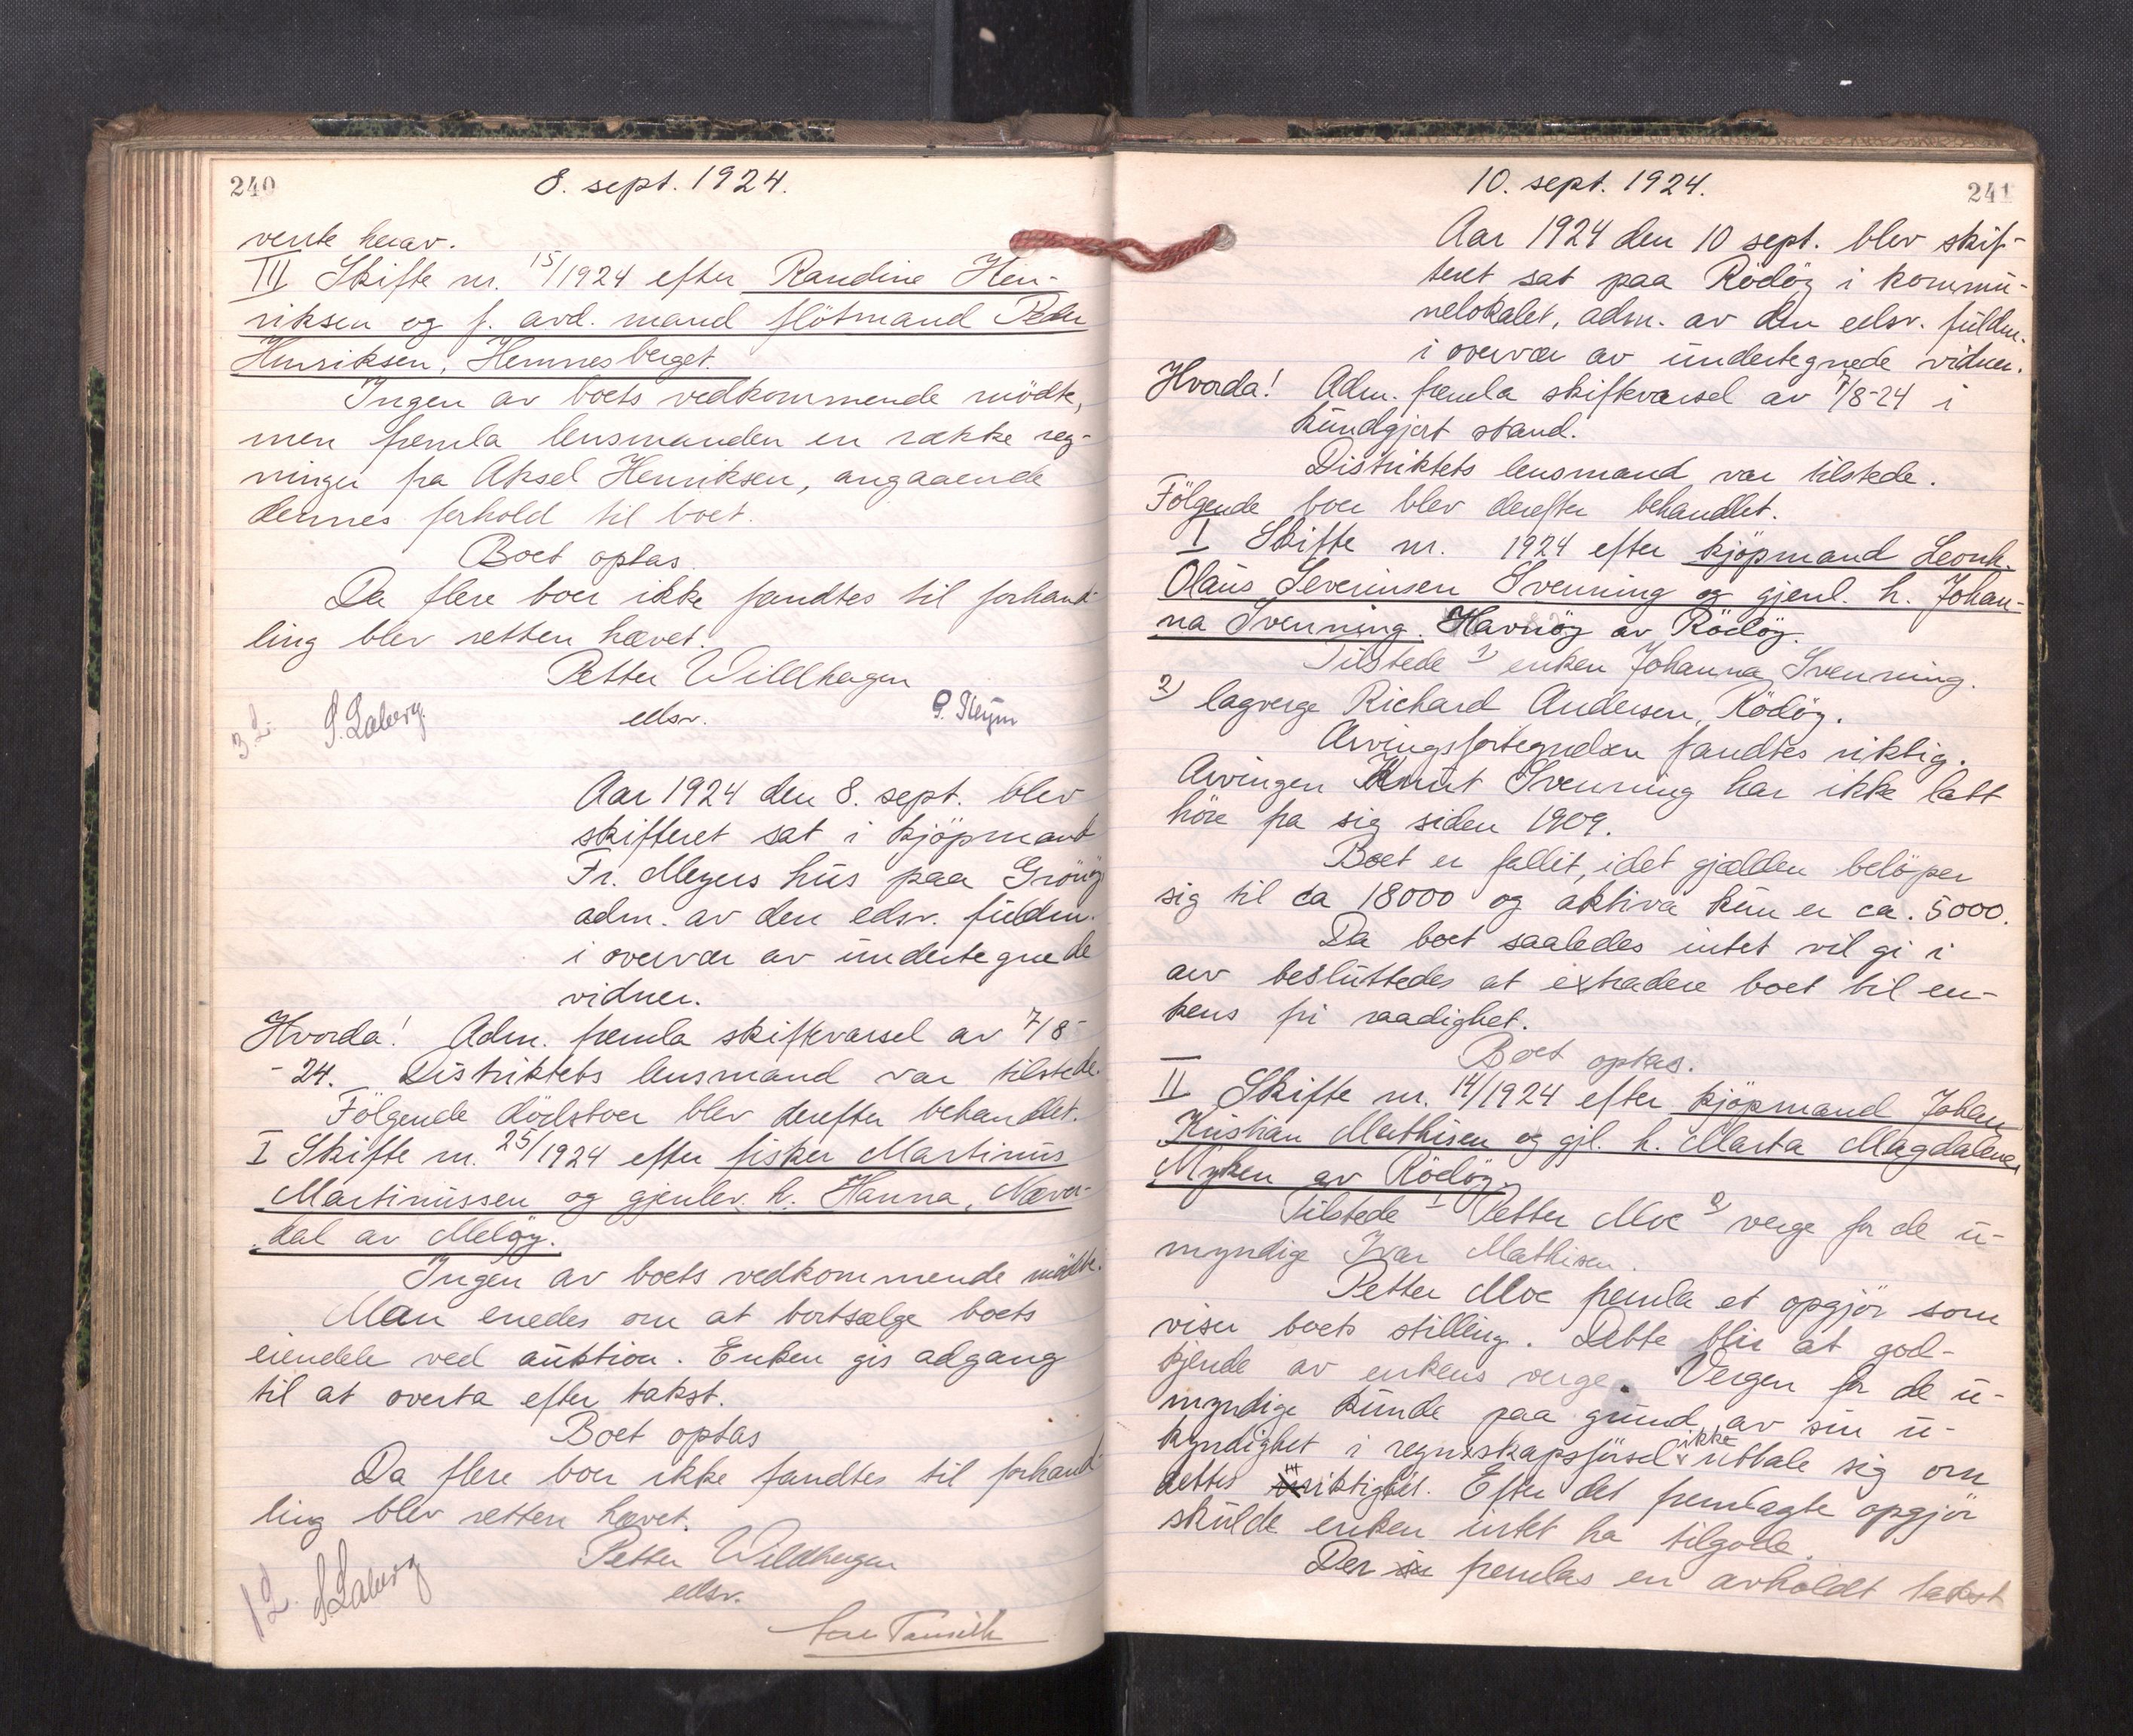 240
8. sept. 1924.
vente herav.
III Skifte nr. 15/1924 efter Randine Hen-
riksen og f. avd. mand flötmand Peder
Henriksen, Hemnesberget.
Ingen av boets vedkommende mödte,
men fremla lensmanden en række reg-
ninger fra Aksel Henriksen, angaaende
dennes forhold til boet.
Boet optas.
Da flere boer ikke fandtes til forhand-
ling blev retten hævet.
Petter Wildhagen
edsv.
Aar 1924 den 8. sept. blev
skifteret sat i kjöpmand
Fr. Meyers hus paa Grönöy
adm. av den edsv. fuldm.
i overvær av undertegnede
vidner.
Hvorda! Adm. fremla skiftevarsel av 7/8-
-24. Distriktets lensmand var tilstede.
Fölgende dödsboer blev derefter behandlet.
I Skifte nr. 25/1924 efter fisker Martinus
Martinussen og gjenlev. h. Hanna, Næver-
dal av Melöy.
Ingen av boets vedkommende mödte.
Man enedes om at bortsælge boets
eiendele ved auktion. Enken gis adgang
til at overta efter takst.
Boet optas
Da flere boer ikke fandtes til forhand-
ling blev retten hævet.
Petter Wildhagen
edsv.
10. sept. 1924.
241
Aar 1924 den 10 sept. blev skif-
teret sat paa Rödöy i kommu-
nelokalet, adm. av den edsv. fuldm.
i overvær av undertegnede vidner.
Hvorda! Adm. fremla skiftevarsel av 7/8-24 i
kundgjort stand.
Distriktets lensmand var tilstede.
Fölgende boer blev derefter behandlet.
I Skifte nr. 1924 efter kjöpmand Leonh.
Olaus Severinsen Svenning og gjenl. h. Johan-
na Svenning. Havnöy av Rödöy.
Tilstede 1) enken Johanna Svenning.
2) lagverge Richard Andersen, Rödöy.
Arvingsfortegnelsen fandtes riktig.
Arvingen Knut Svenning har ikke latt
höre fra sig siden 1909.
Boet er fallit, idet gjælden belöper
sig til ca 18000 og aktiva kun er ca. 5000.
Da boet saaledes intet vil gi i
arv besluttedes at extradere boet til en-
kens fri raadighet.
Boet optas.
II Skifte nr. 14/1924 efter kjöpmand Johan
Kristian Mathisen og gjl. h. Marta Magdalena
Myken av Rödöy.
Tilstede 1 Petter Moe 2) verge for de u-
myndige Ivar Mathisen.
Petter Moe fremla et opgjör som
viser boets stilling. Dette blir at god-
kjende av enkens verge. Vergen for de u-
myndige kunde paa grund av sin u-
kyndighet i regnskapsförsel ikke uttale sig om
dettes riktighet. Efter det fremlagte opgjör
skulde enken intet ha tilgode.
Der fremlas en avholdt takst